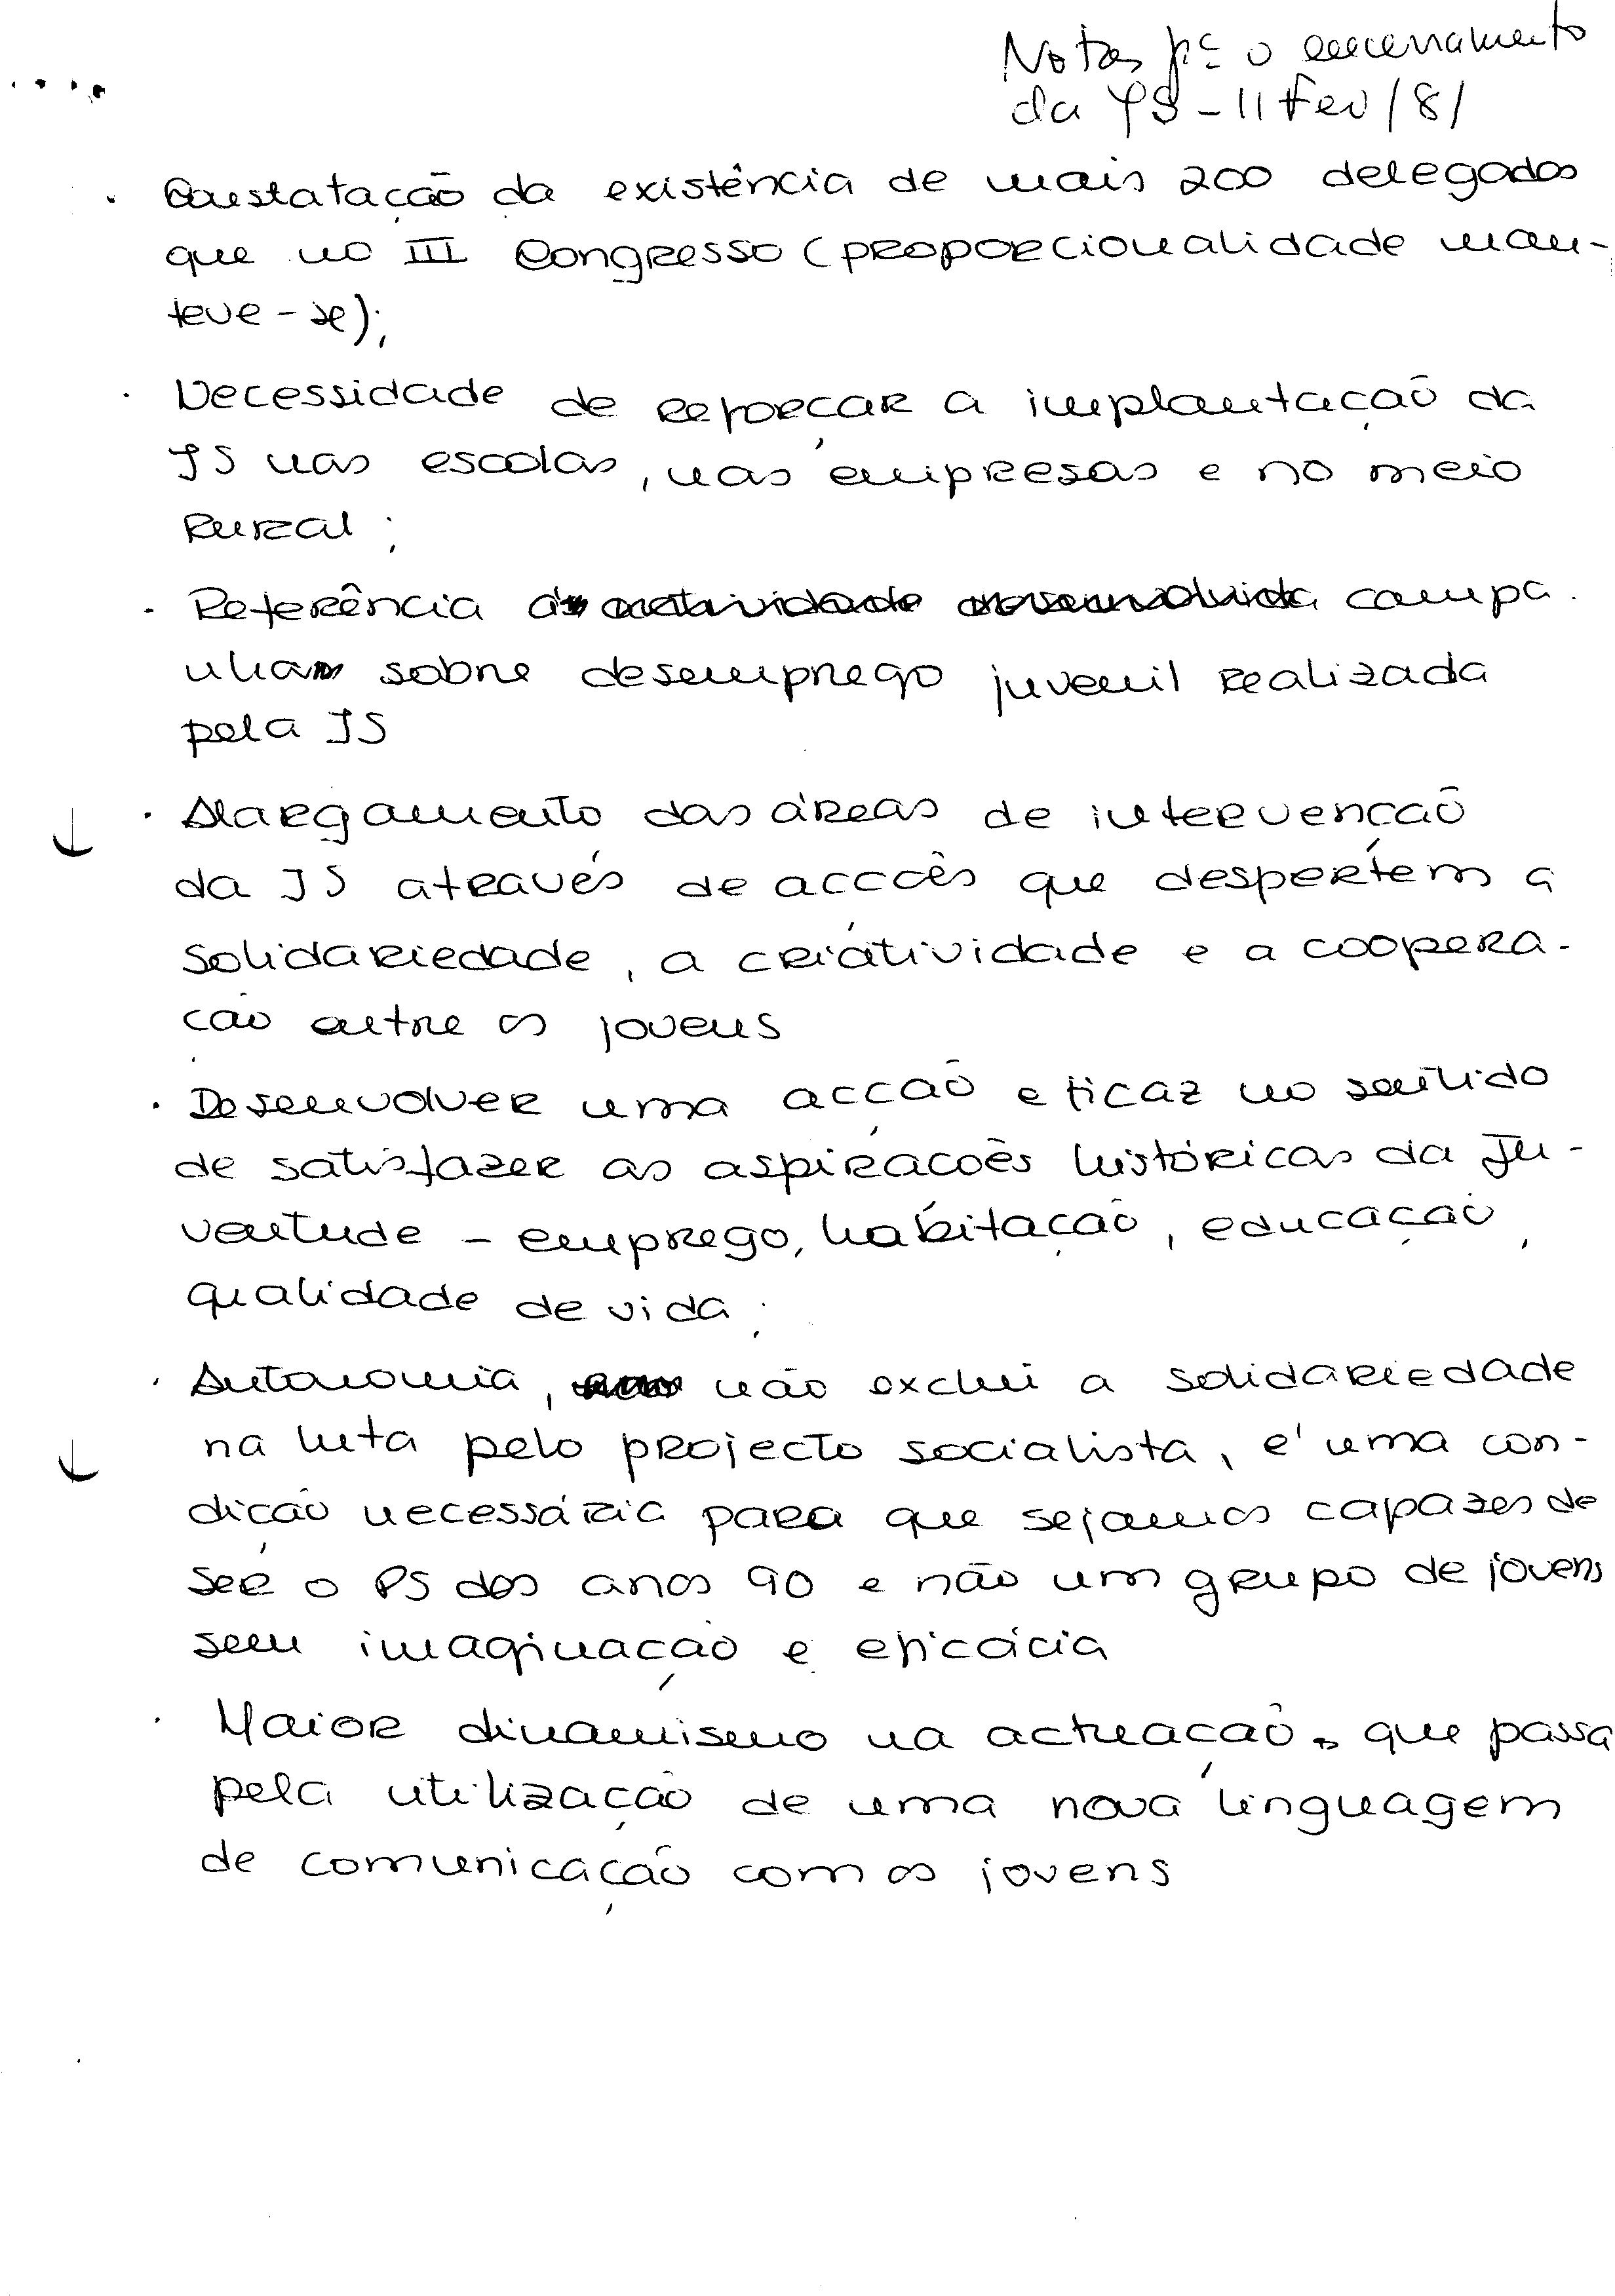 Notas pª o encerramento
da JS - 11 Fev / 81
. Constatação da existência de mais 200 delegados
que no III Congresso (proporcionalidade man-
teve-se);
. Necessidade de reforçar a implantação da
JS nas escolas, nas empresas e no meio
rural;
. Referência à campa.
nha sobre desemprego juvenil realizada
pela JS
. Alargamento das áreas de intervenção
da JS através de acções que despertem a
solidariedade, a criatividade e a coopera-
ção entre os jovens
. Desenvolver uma acção eficaz no sentido
de satisfazer as aspirações históricas da Ju-
ventude - emprego, habitação, educação,
qualidade de vida;
. Autonomia, não exclui a solidariedade
na luta pelo projecto socialista, é uma con-
dição necessária para que sejamos capazes de
ser o PS dos anos 90 e não um grupo de jovens
sem imaginação e eficácia
. Maior dinamismo na actuação, que passa
pela utilização de uma nova linguagem
de comunicação com os jovens